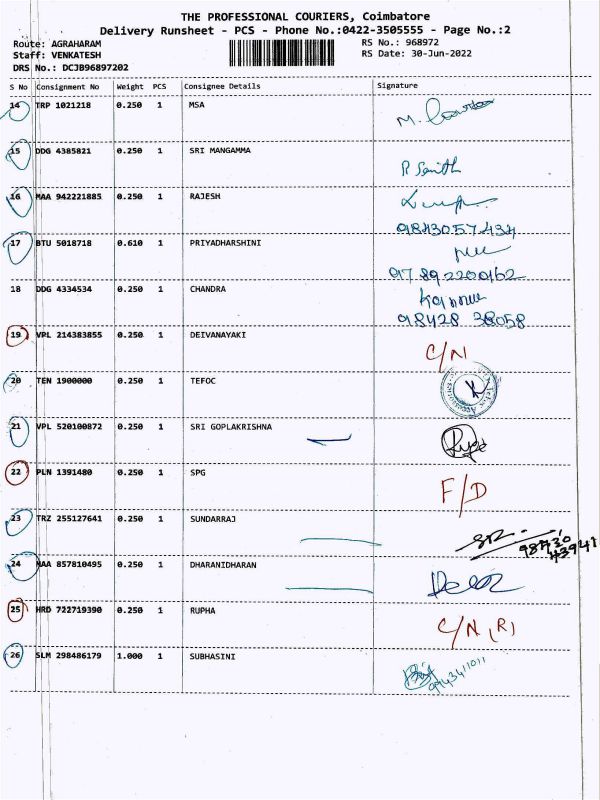 THE PROFESSIONAL COURIERS, Coimbatore
Delivery Runsheet - PCS - Phone No.:0422-3505555 - Page No.:2
Route: AGRAHARAM
RS No.: 968972
Staff: VENKATESH
RS Date: 30-Jun-2022
DRS No.: DCJB96897202
S No Consignment No Weight PCS Consignee Details Signature
14 TRP 1021218 0.250 1 MSA
M.
15 DDG 4385821 0.250 1 SRI MANGAMMA
P Senith
16 MAA 942221885 0.250 1 RAJESH
9843057434
17 BTU 5018718 0.610 1 PRIYADHARSHINI
917892200162
18 DDG 4334534 0.250 1 CHANDRA
98428 38058
19 VPL 214383855 0.250 1 DEIVANAYAKI
C/N
20 TEN 1900000 0.250 1 TEFOC
21 VPL 520100872 0.250 1 SRI GOPLAKRISHNA
22 PLN 1391480 0.250 1 SPG
F/D
23 TRZ 255127641 0.250 1 SUNDARRAJ
98430
43941
24 MAA 857810495 0.250 1 DHARANIDHARAN
25 HRD 722719390 0.250 1 RUPHA
C/N (R)
26 SLM 298486179 1.000 1 SUBHASINI